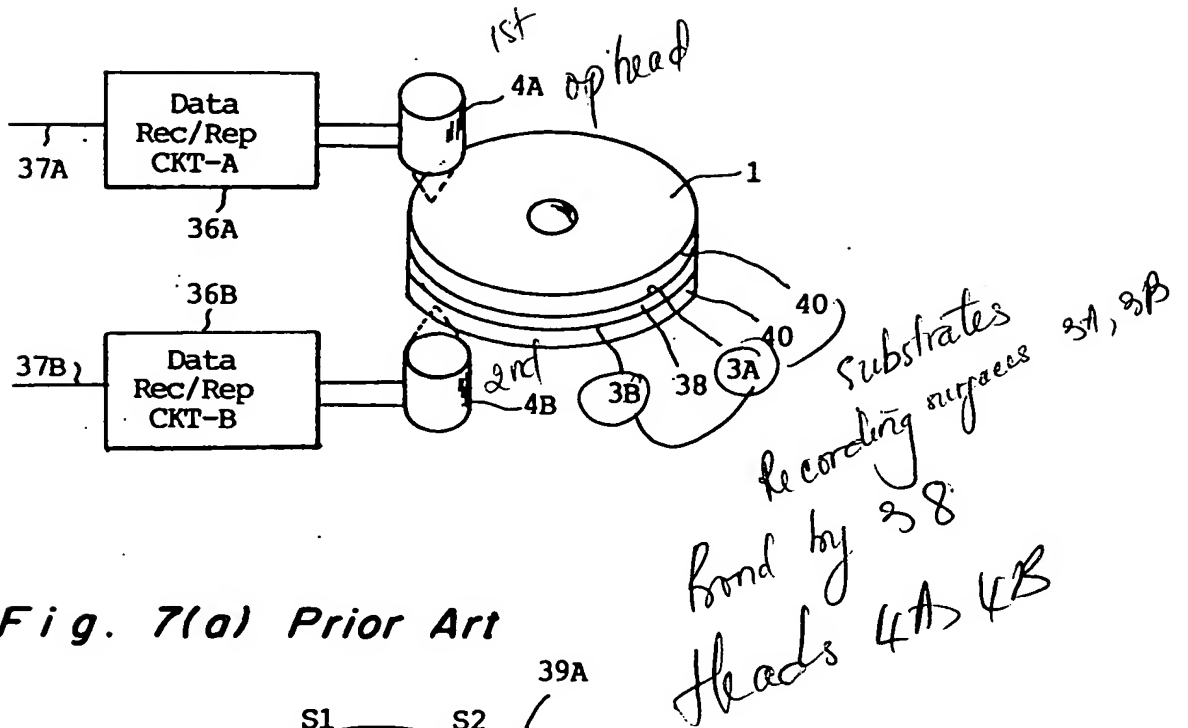 1st
4A op head
Data
Rec/Rep
CKT-A
37A
36A
1
36B
40
40
Data
Rec/Rep
CKT-B
37B
2nd
4B
3B 38 3A
Substrates
Recording surfaces 3A, 3B
Bond by 38
Heads 4A, 4B
Fig. 7(a) Prior Art
39A
S1 S2